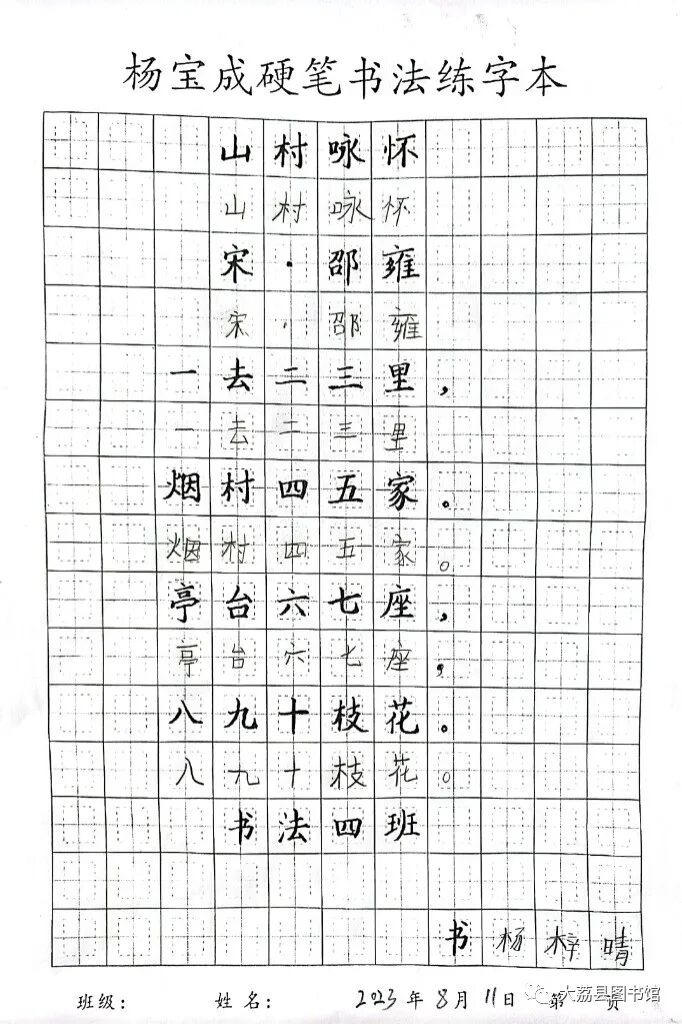 杨宝成硬笔书法练字本
山村咏怀
山村咏怀
宋·邵雍
宋·邵雍
一去二三里，
一去二三里
烟村四五家。
烟村四五家。
亭台六七座，
亭台六七座，
八九十枝花。
八九十枝花。
书法四班
书杨梓晴
班级： 姓名： 2023年8月11日 第 页
大荔县图书馆